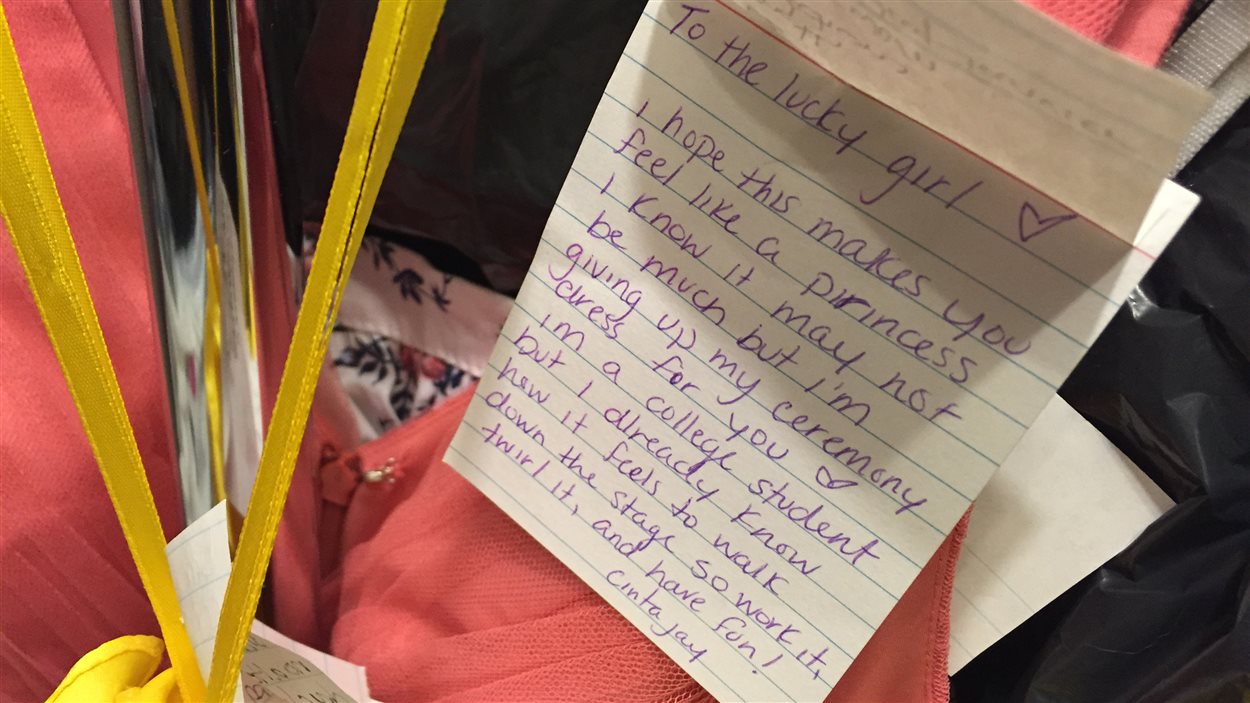 To the lucky girl ♡
I hope this makes you
feel like a princess
I know it may not
be much but i'm
giving up my ceremony
dress for you ♡
im a college student
but I already know
how it feels to walk
down the stage so work it,
twirl it, and have fun!
cinta jay